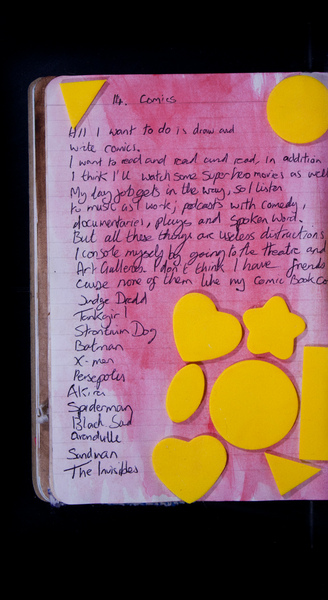 14. Comics
All I want to do is draw and
write comics.
I want to read and read and read, in addition
I think I'll watch some Superhero movies as well
My day job gets in the way, so I listen
to music as I work; podcasts with comedy,
documentaries, plays and spoken word.
But all these things are useless distractions
I console myself by going to the theatre and
Art Galleries. I don't think I have friends
cause none of them like my Comic Book Co
Judge Dredd
Tankgirl
Strontium Dog
Batman
X-men
Persepolis
Akira
Spiderman
Black Sad
Grandville
Sandman
The Invisibles